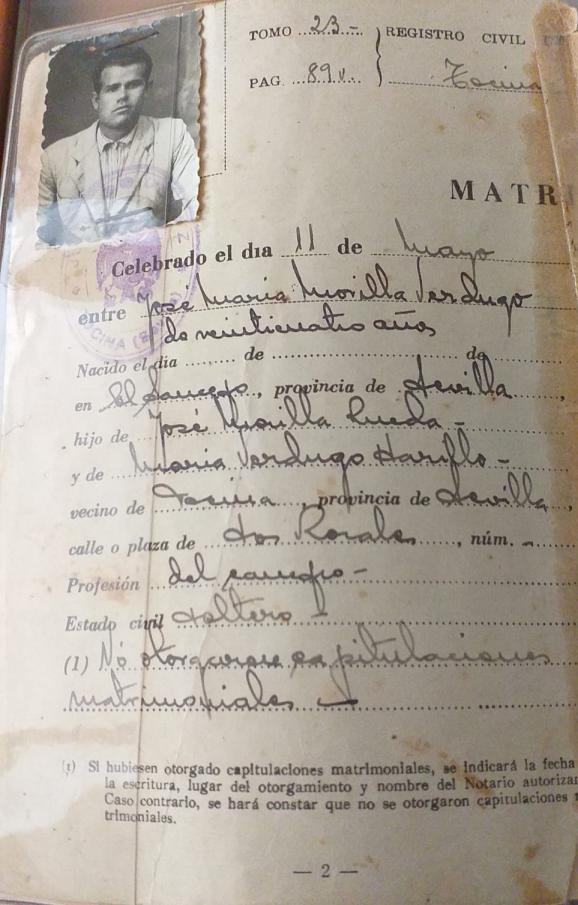 TOMO 23-
REGISTRO CIVIL
PAG. 89v.
Tocina
MATR
Celebrado el día 11 de Mayo
entre José María Morilla Verdugo
de veinticuatro años
Nacido el día ........ de ........................ de
en El Saucejo, provincia de Sevilla,
hijo de José Morilla Rueda-
y de María Verdugo -
vecino de Tocina, provincia de Sevilla,
calle o plaza de Los Rosales, núm. -
Profesión del campo-
Estado civil soltero -
(1) No otorgaron capitulaciones
matrimoniales
(1) Si hubiesen otorgado capitulaciones matrimoniales, se indicará la fecha
la escritura, lugar del otorgamiento y nombre del Notario autorizan
Caso contrario, se hará constar que no se otorgaron capitulaciones
trimoniales.
— 2 —